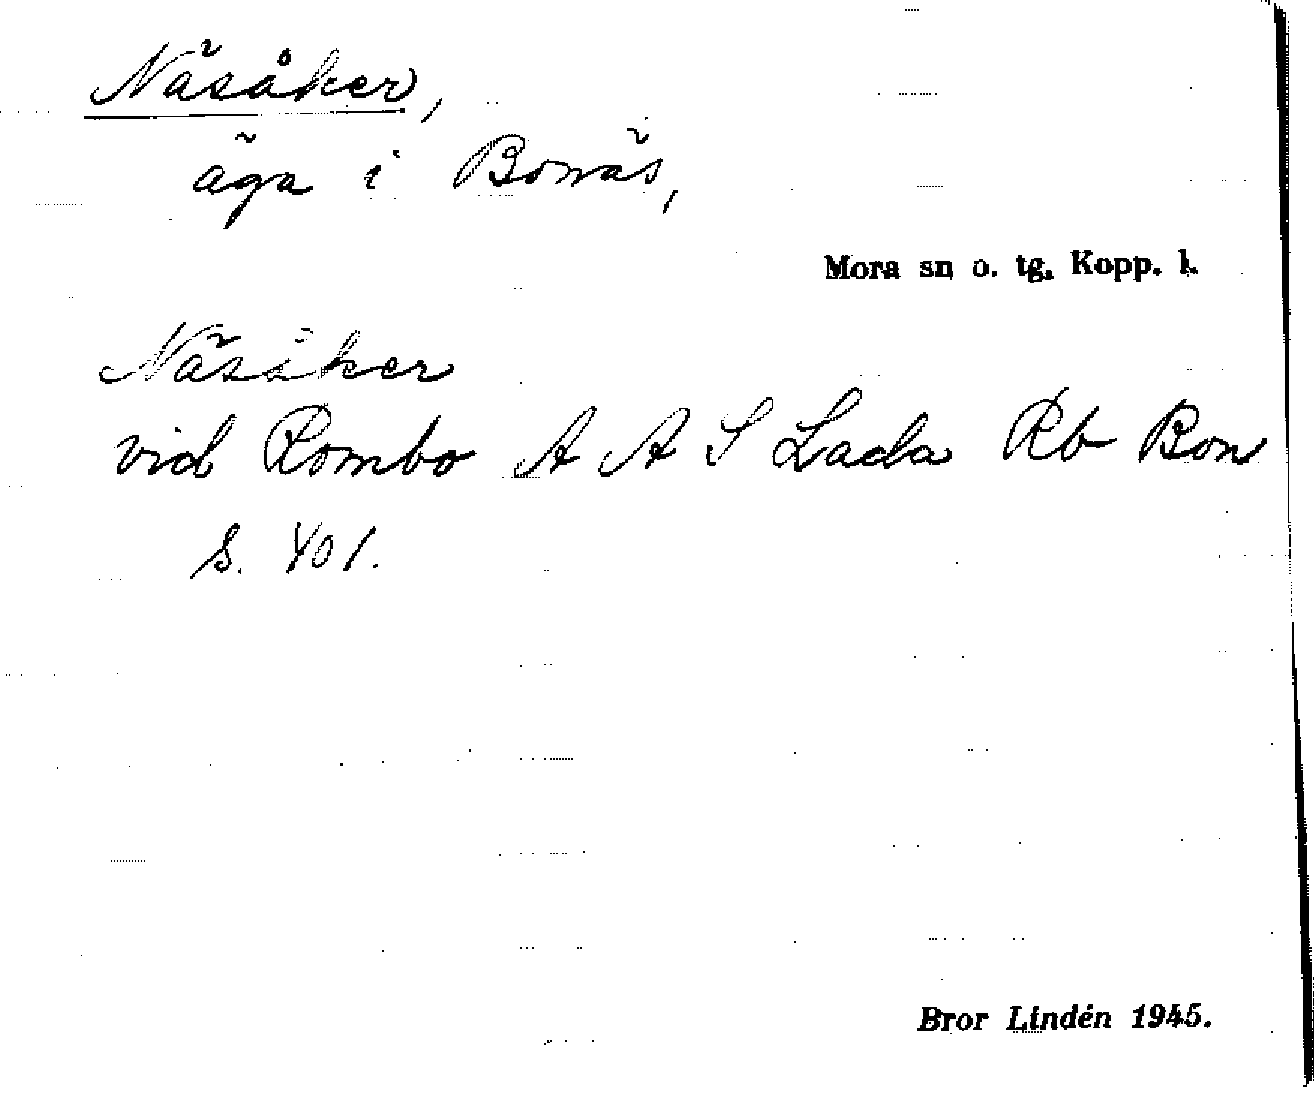 Näsåker,
äga i Bonäs,
Mora sn o. tg. Kopp. l.
Näsåker
vid Rombo A A S Lada Rb Bon
s. 401.
Bror Lindén 1945.